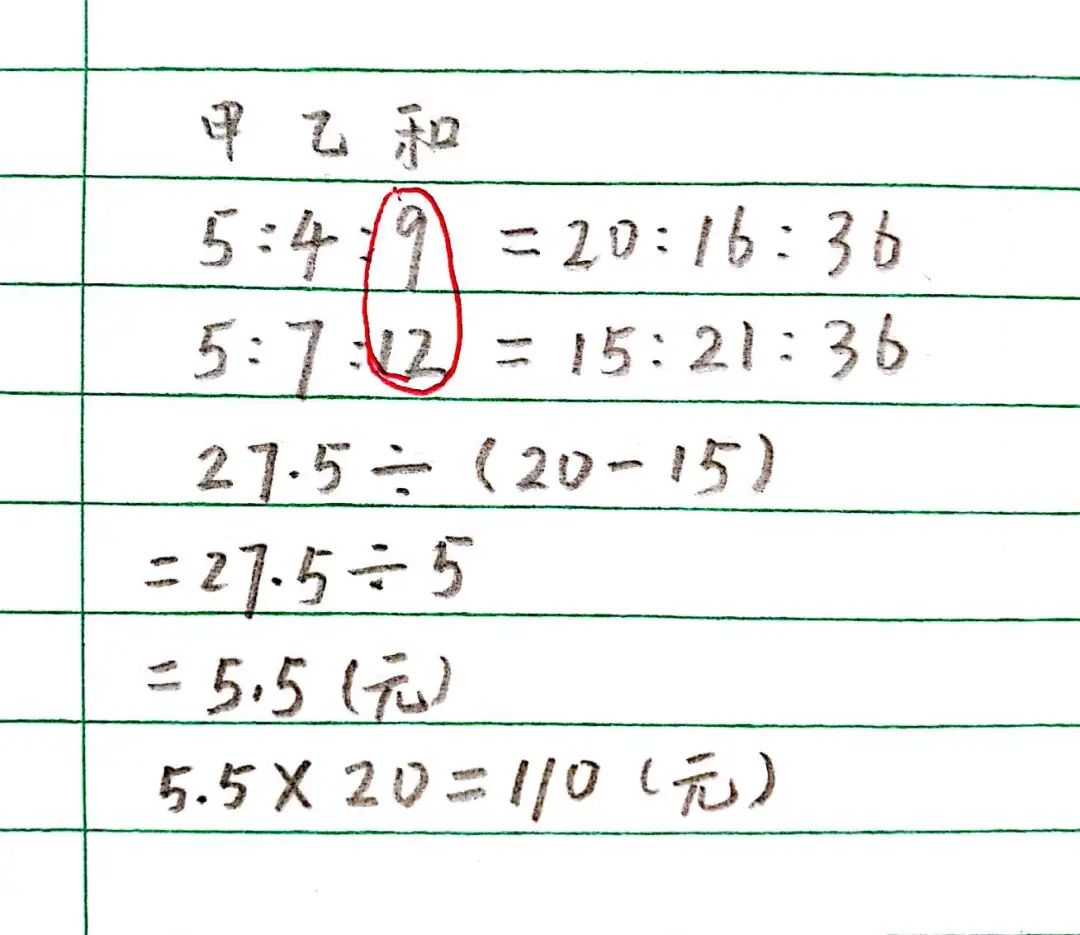 甲 乙 和
5:4:9 =20:16:36
5:7:12 =15:21:36
27.5÷(20-15)
=27.5÷5
=5.5(元)
5.5×20=110(元)